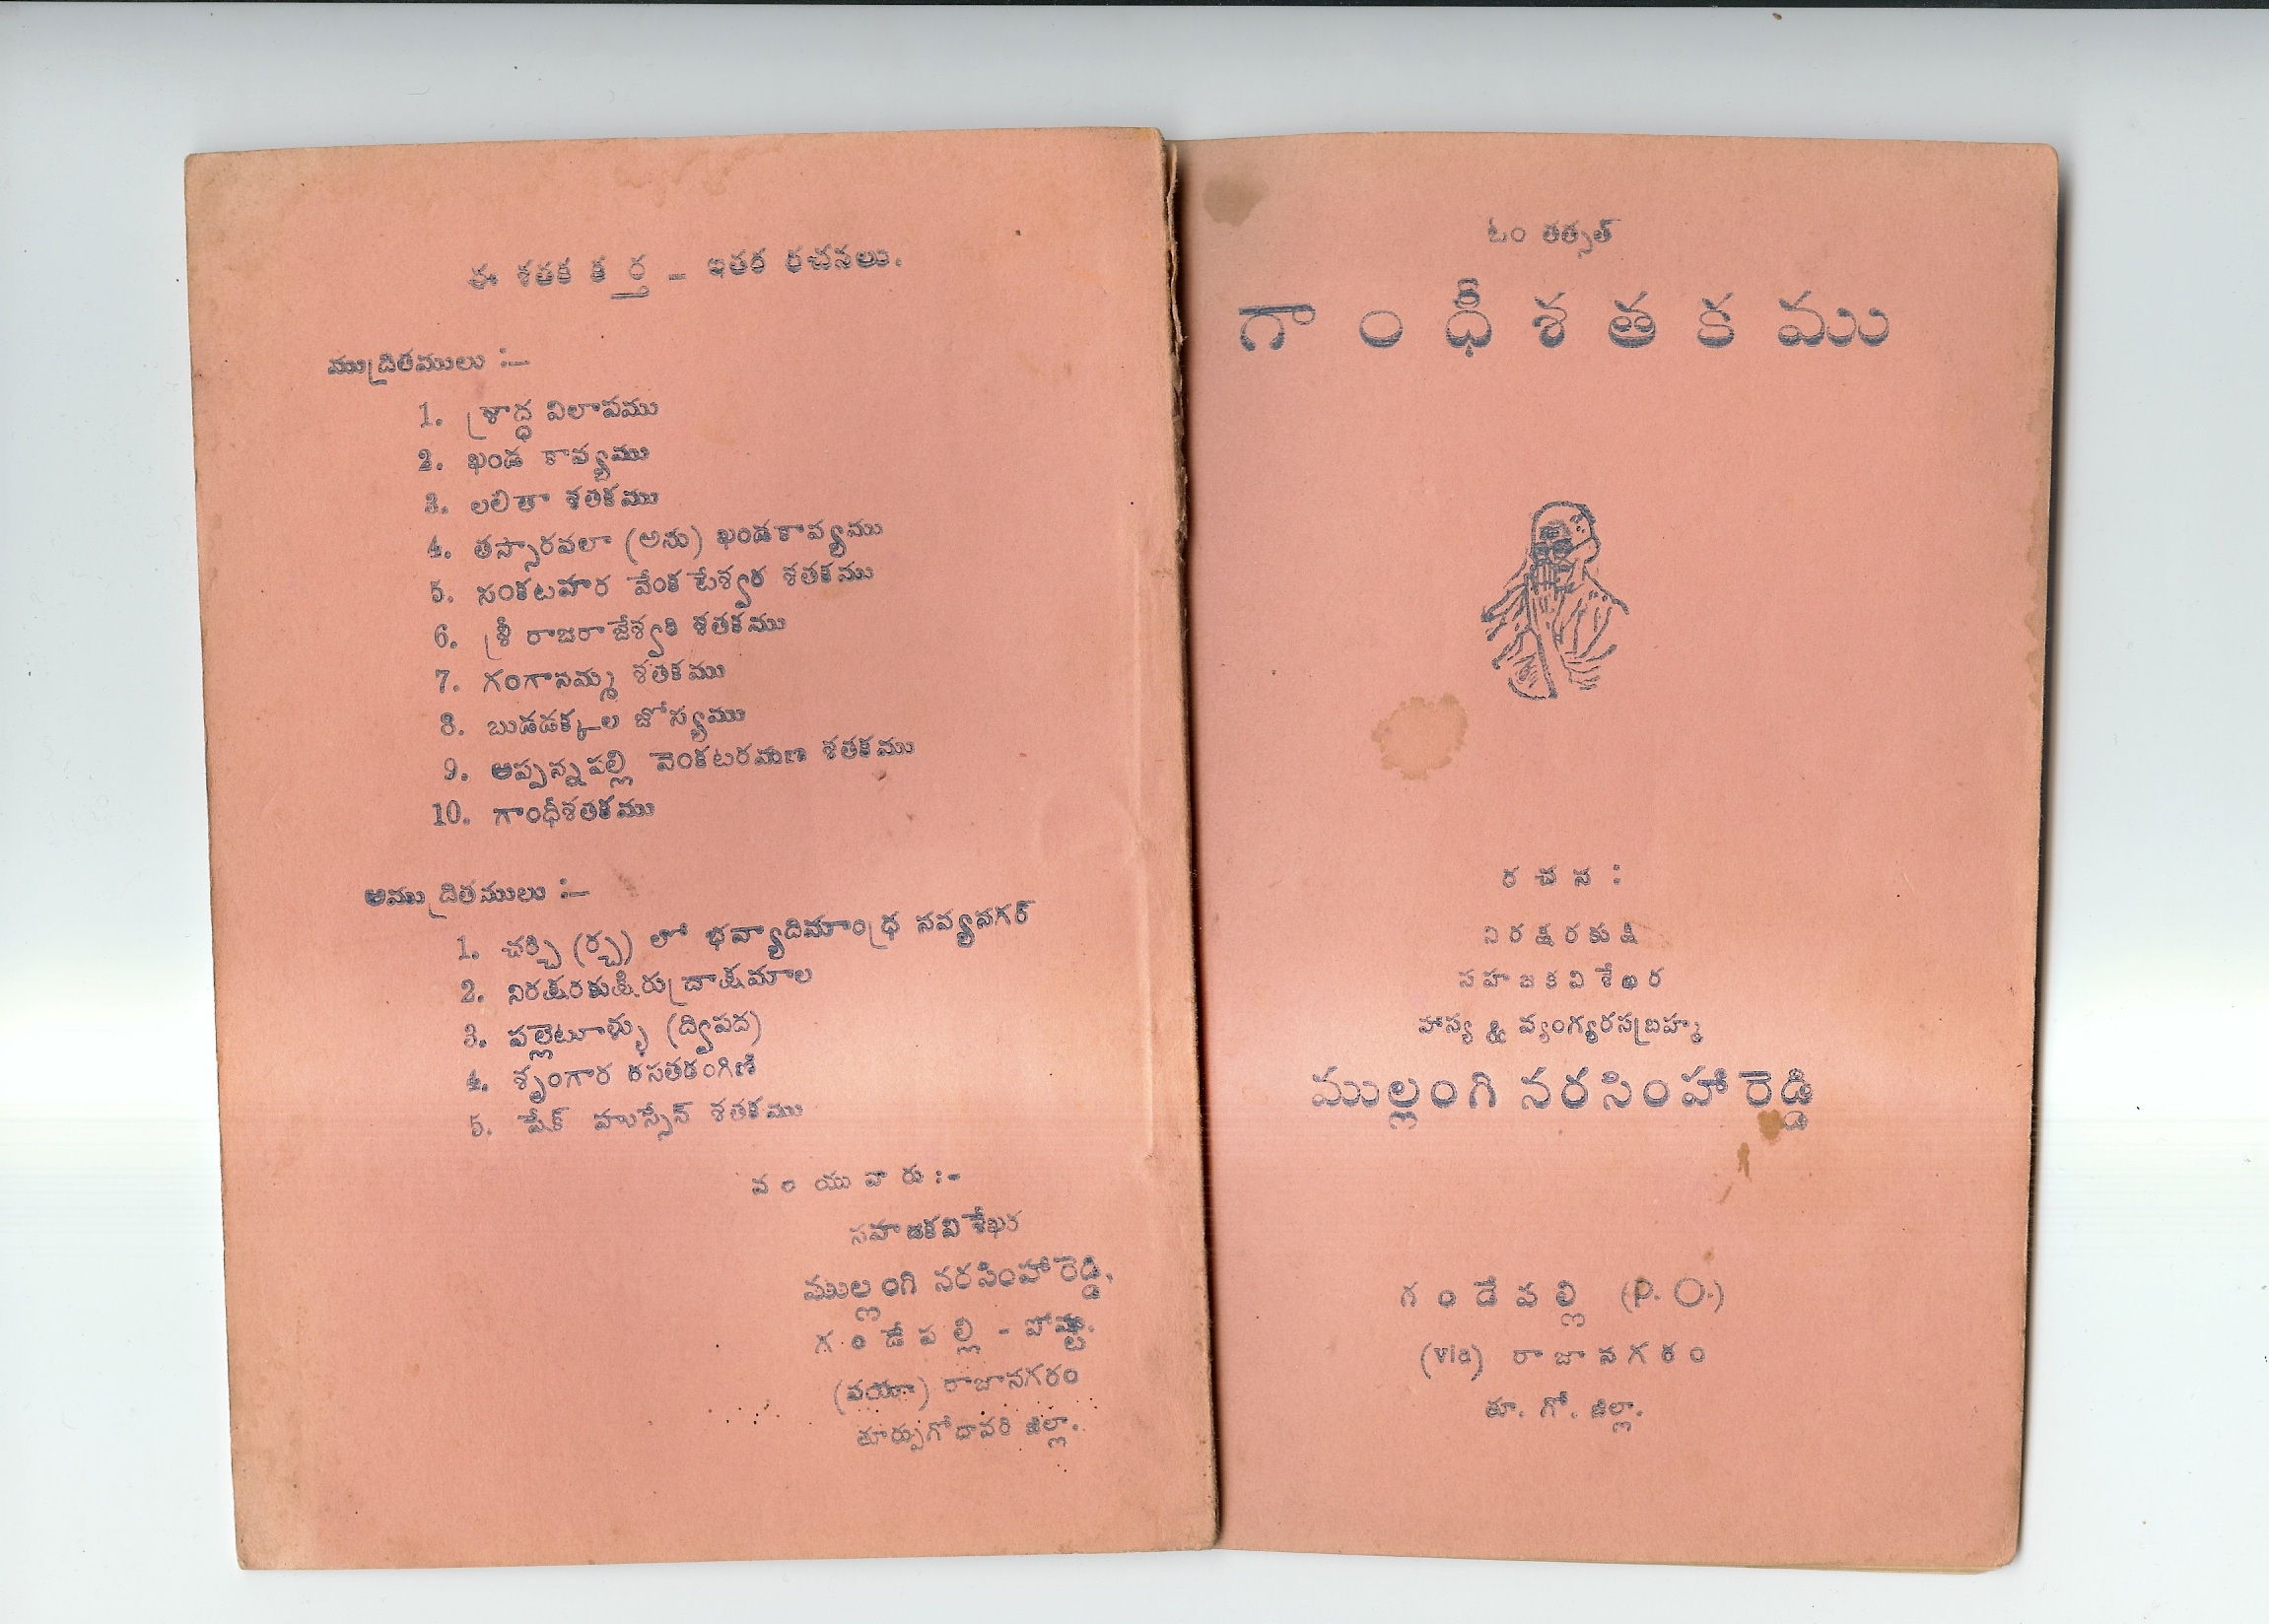 ఈ శతక కర్త - ఇతర రచనలు.
ముద్రితములు :—
1. శ్రాద్ధ విలాపము
2. ఖండ కావ్యము
3. లలితా శతకము
4. తస్సారవలా (అను) ఖండకావ్యము
5. సంకటహర వేంకటేశ్వర శతకము
6. శ్రీ రాజరాజేశ్వరి శతకము
7. గంగానమ్మ శతకము
8. బుడడక్కల జోస్యము
9. అప్పన్నపల్లి వెంకటరమణ శతకము
10. గాంధీశతకము
అముద్రితములు :—
1. చర్చి (ర్చ) లో భవ్యాదిమాంధ్ర నవ్యనగర్
2. నిరక్షరకుక్షిరుద్రాక్షమాల
3. పల్లెటూళ్ళు (ద్విపద)
4. శృంగార రసతరంగిణి
5. షేక్ హుస్సేన్ శతకము
వ్రాయువారు :-
సహజకవిశేఖర
ముల్లంగి నరసింహారెడ్డి,
గండేపల్లి - పోష్టు.
(వయా) రాజానగరం
తూర్పుగోదావరి జిల్లా.
ఓం తత్సత్
గాంధీశతకము
రచన :
నిరక్షరకుక్షి
సహజకవిశేఖర
హాస్య & వ్యంగ్యరసబ్రహ్మ
ముల్లంగి నరసింహారెడ్డి
గండేపల్లి (P. O.)
(via) రాజానగరం
తూ. గో. జిల్లా.